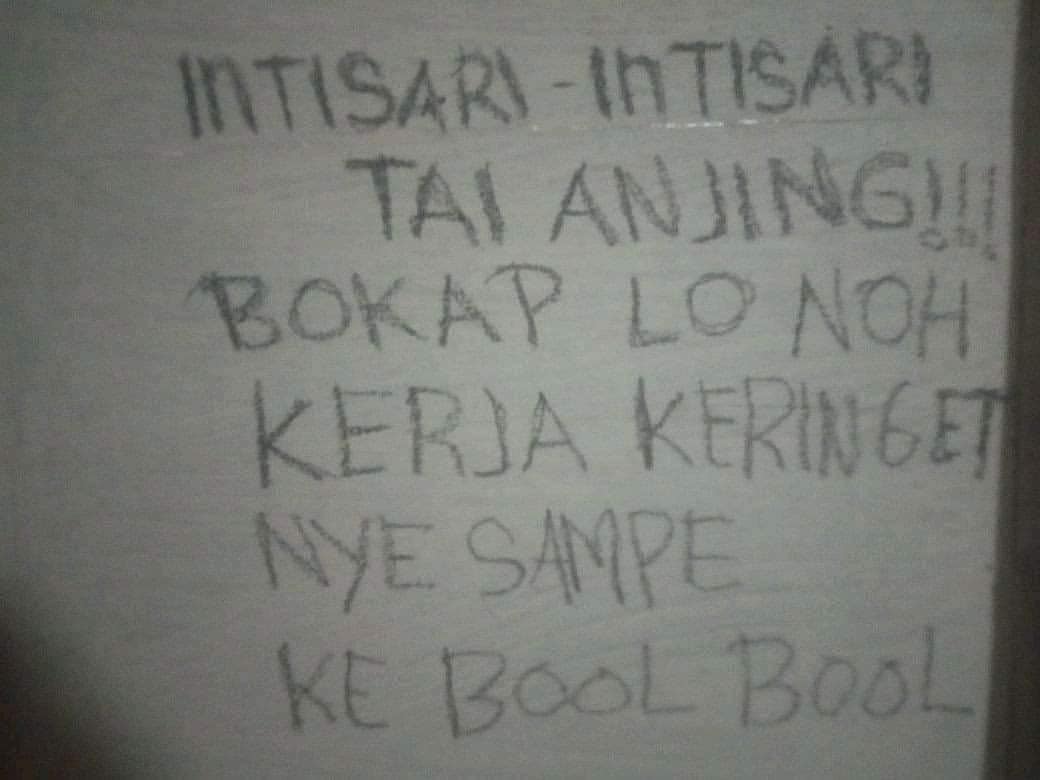 INTISARI - INTISARI
TAI ANJING!!!
BOKAP LO NOH
KERJA KERINGET
NYE SAMPE
KE BOOL BOOL